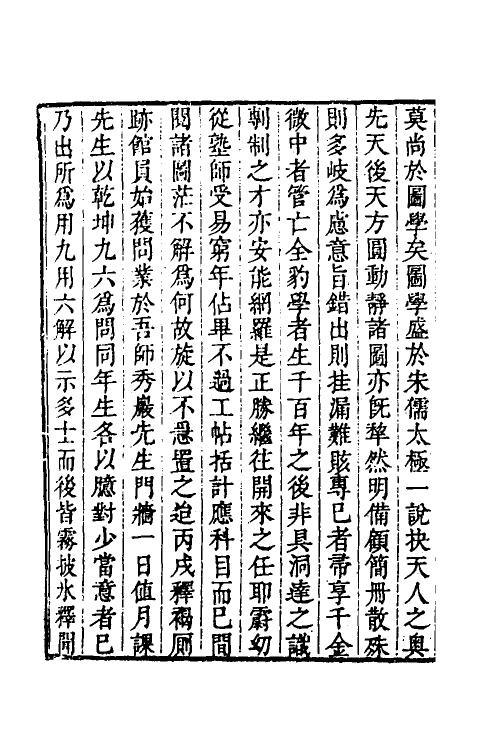 莫尚於圖學矣圖學盛於宋儒太極一說抉天人之奧
先天後天方圓動靜諸圖亦既犖然明備顧簡冊散殊
則多岐爲慮意旨錯出則挂漏難賅專己者帚享千金
微中者管亡全豹學者生千百年之後非具洞達之識
制之才亦安能網羅是正勝繼往開來之任耶霨幼
從塾師受易窮年佔畢不過工帖括計應科目而已間
閱諸圖茫不解爲何故旋以不急置之迨丙戌釋褐厠
跡館員始獲問業於吾師秀巖先生門牆一日值月課
先生以乾坤九六爲問同年生各以臆對少當意者已
乃出所爲用九用六解以示多士而後皆霧披氷釋開